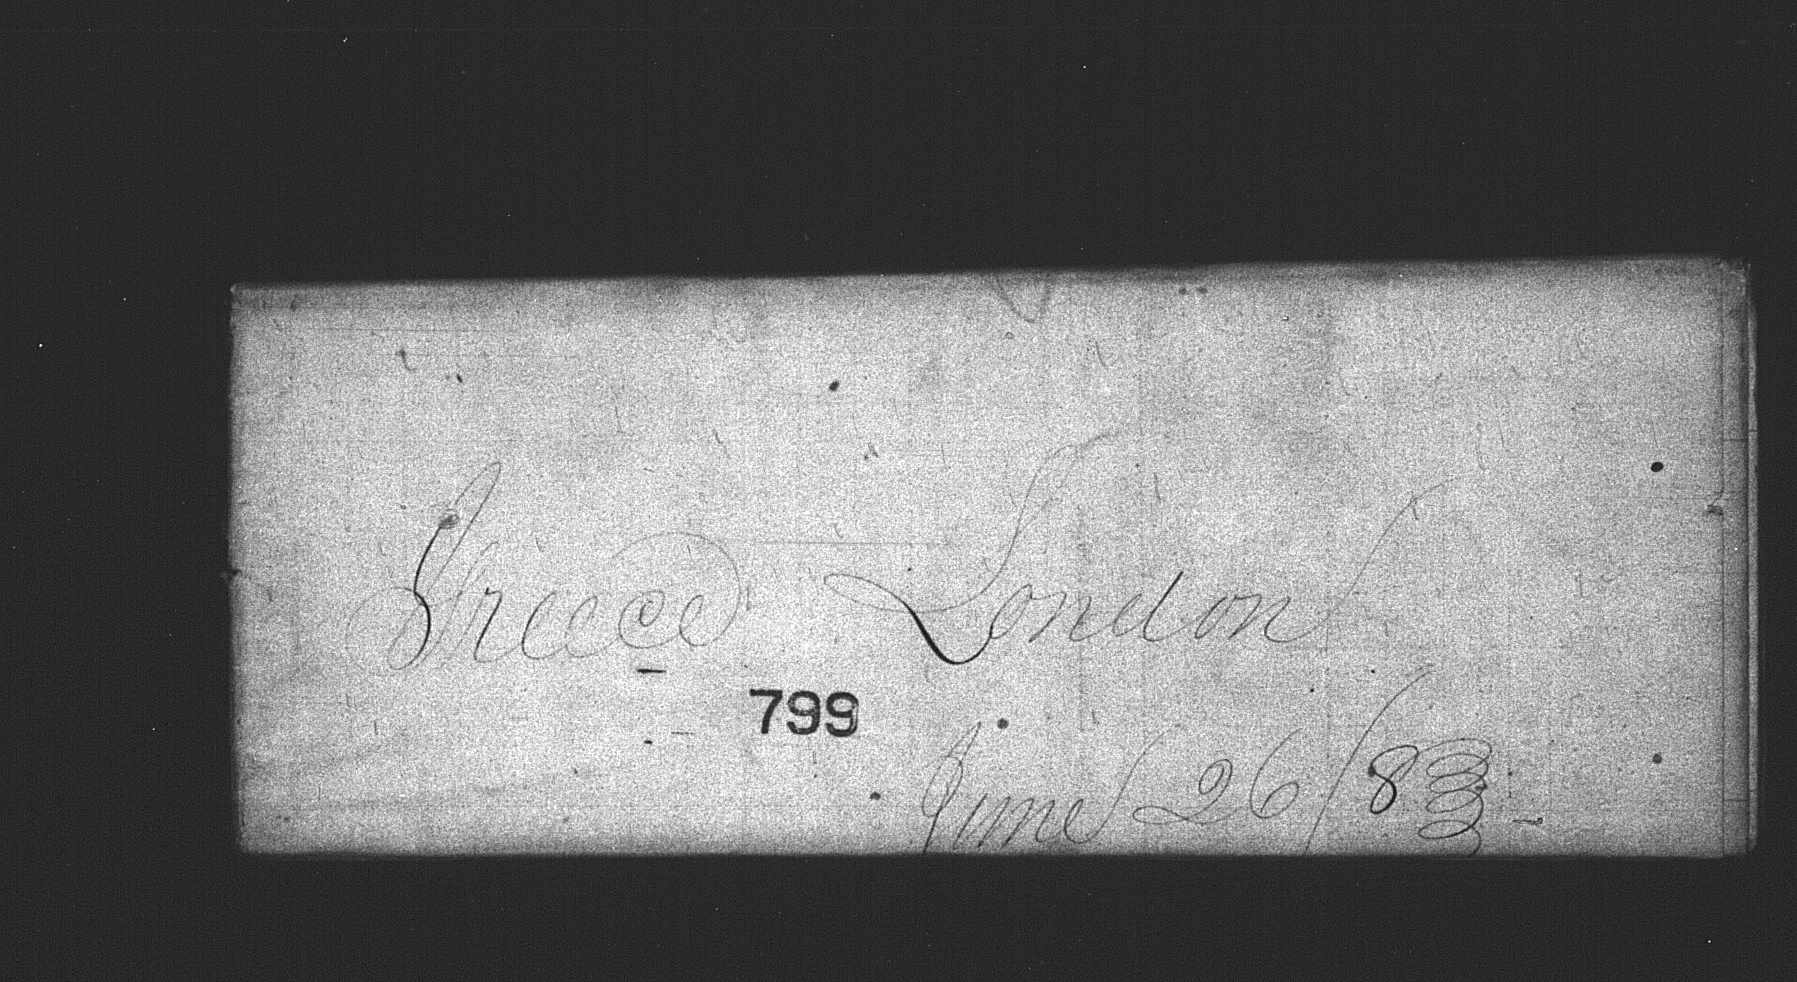 Greece London
799
June 26/83